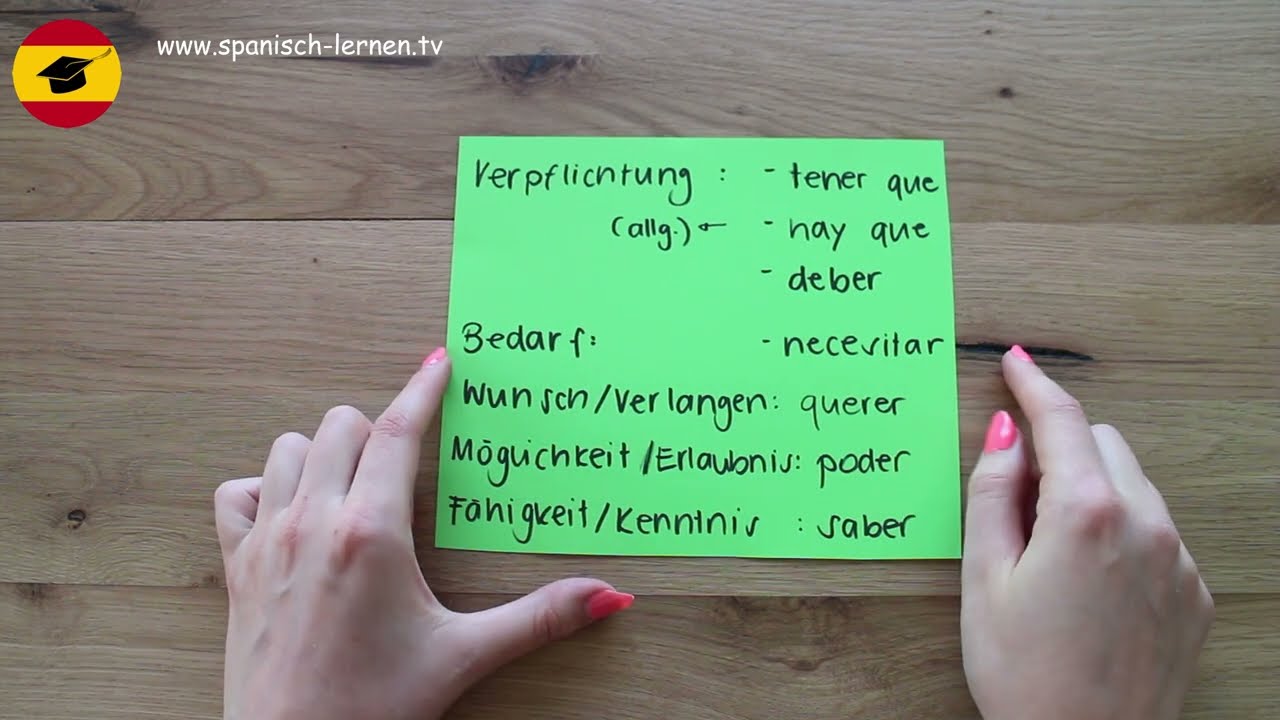 www.spanisch-lernen.tv
Verpflichtung : - tener que
(allg.) ← - hay que
- deber
Bedarf: - necesitar
Wunsch/Verlangen: querer
Möglichkeit/Erlaubnis: poder
Fähigkeit/Kenntnis : saber